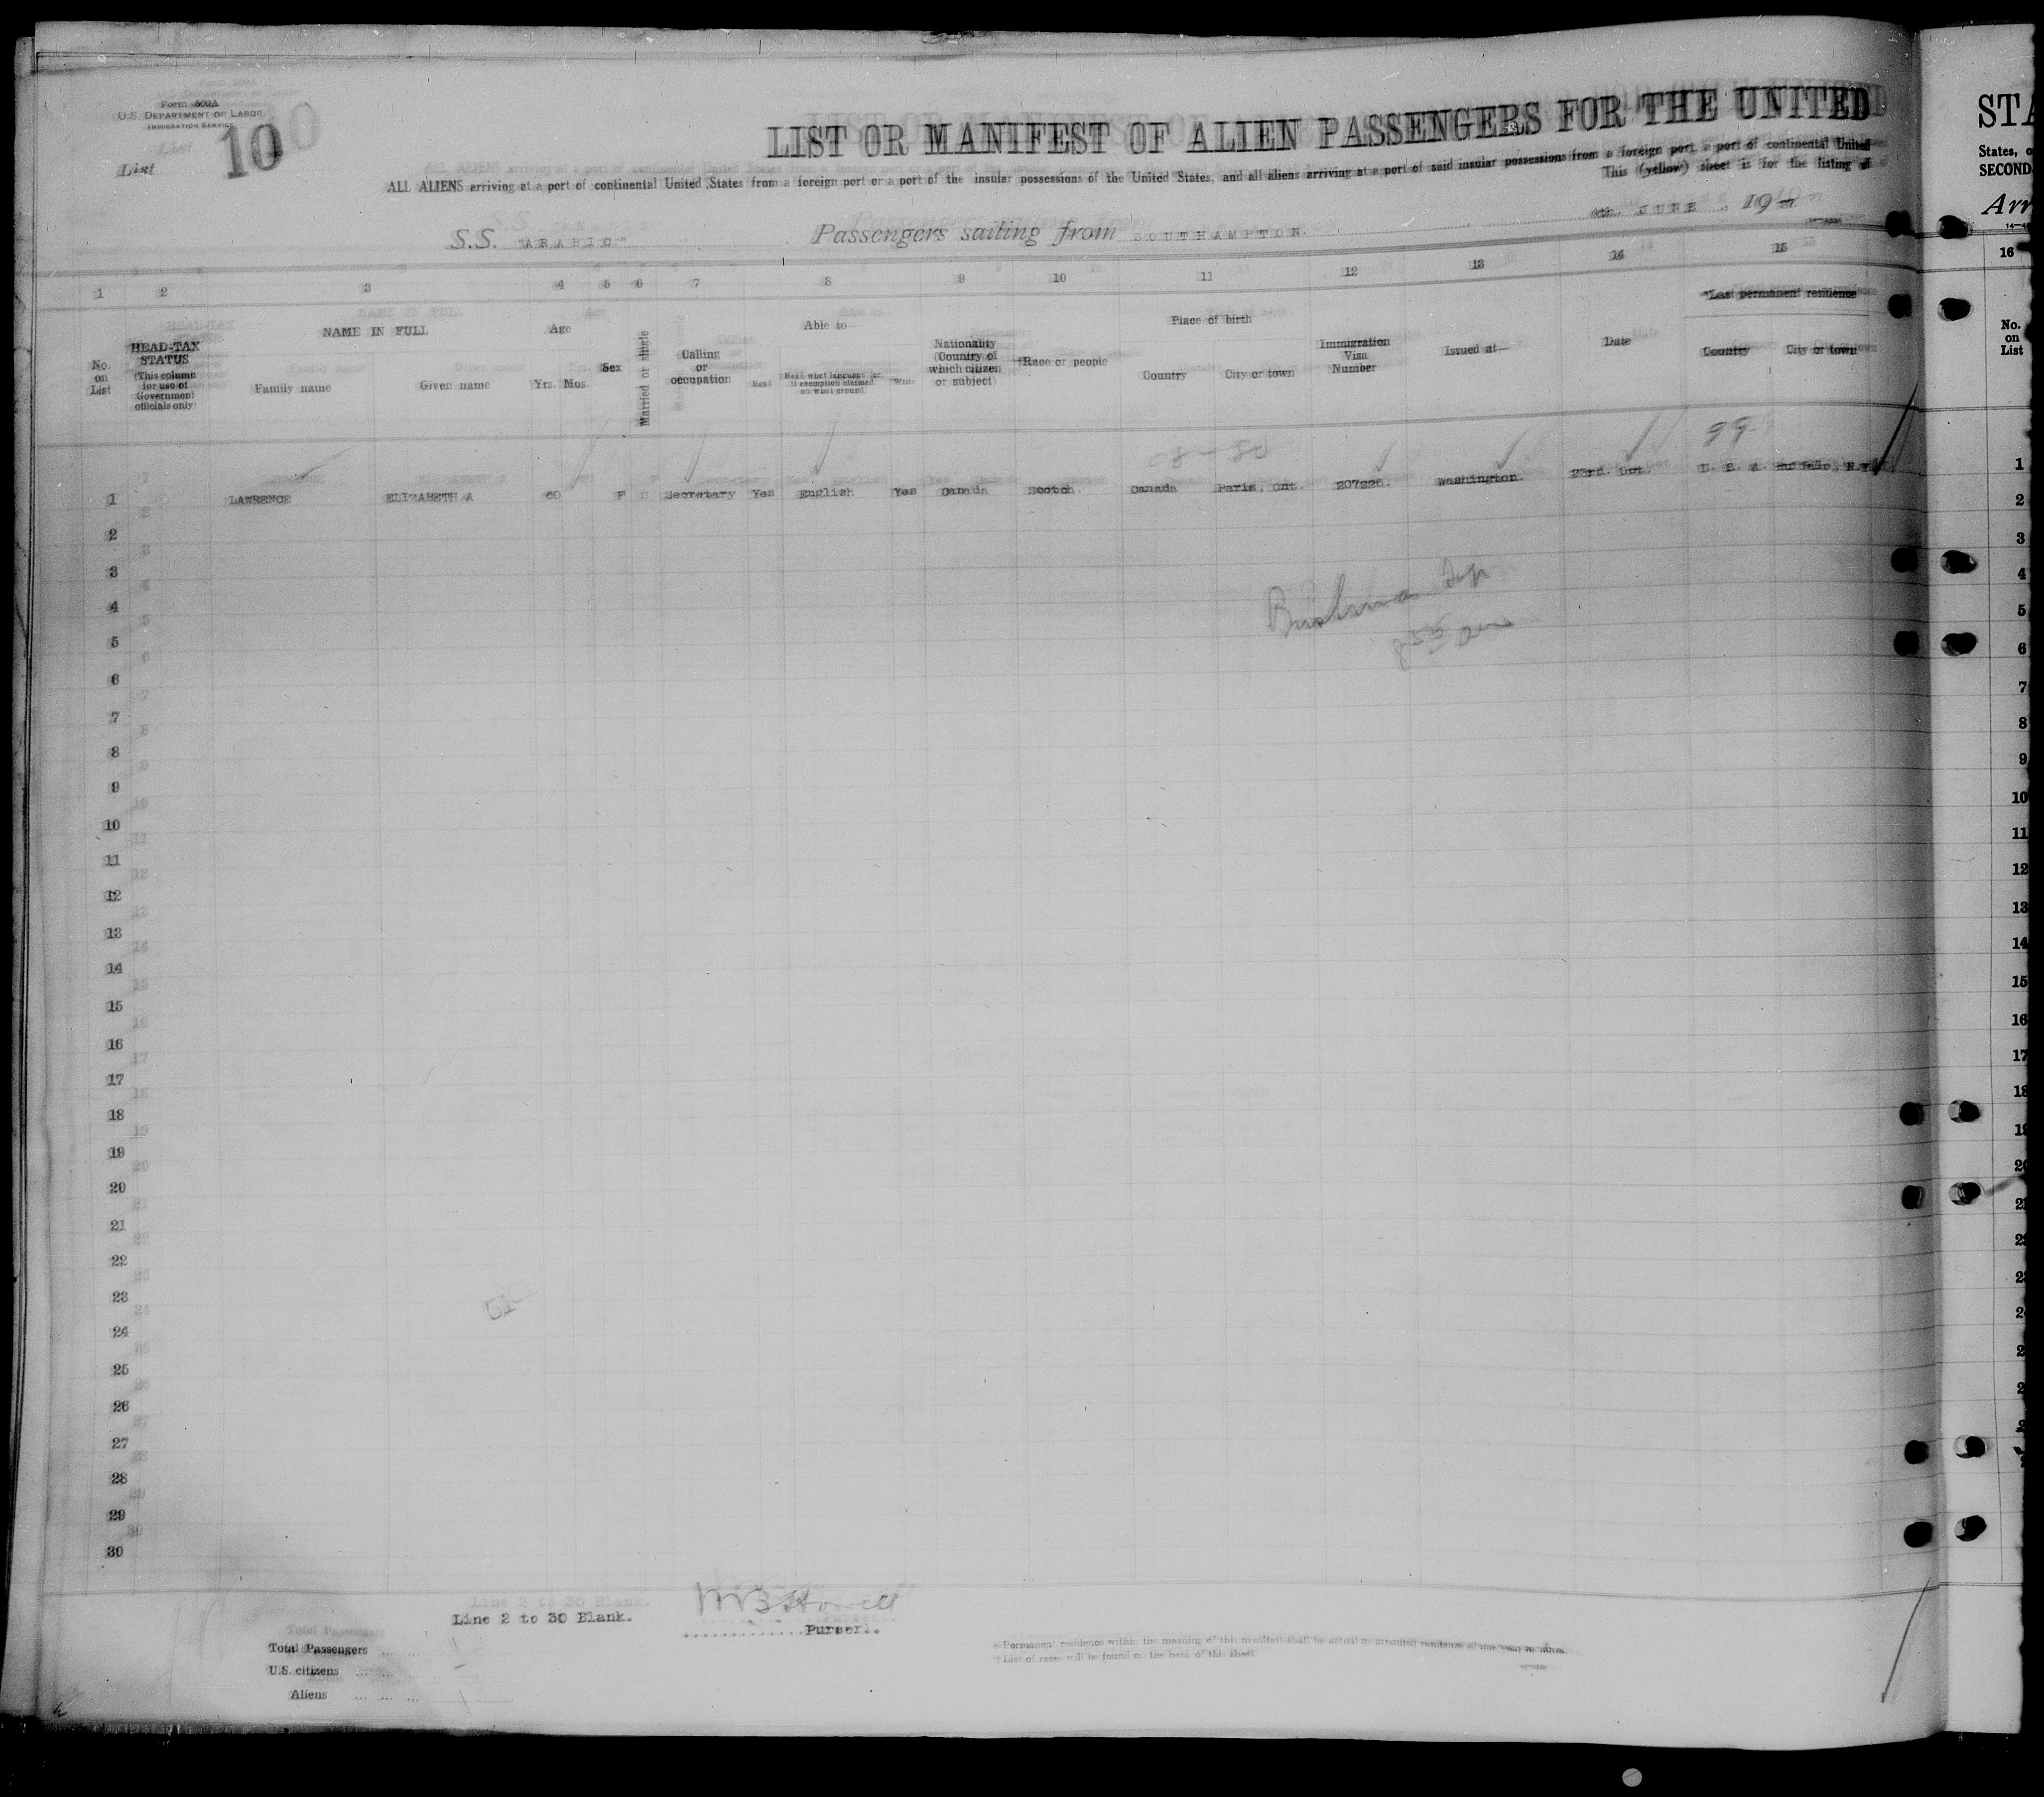 Form 500A
U.S. DEPARTMENT OF LABOR
IMMIGRATION SERVICE
List 10
LIST OR MANIFEST OF ALIEN PASSENGERS FOR THE UNITED
ALL ALIENS arriving at a port of continental United States from a foreign port or a port of the insular possessions of the United States, and all aliens arriving at a port of said insular possessions from a foreign port, a port of continental United
This (yellow) sheet is for the listing of
S.S. "ARABIC" Passengers sailing from SOUTHAMPTON. JUNE 19
STA
States, o
SECOND
Arr
1 2 3 4 5 6 7 8 9 10 11 12 13 14 15 16
No. on List
HEAD-TAX STATUS (This column for use of Government officials only)
NAME IN FULL
Family name Given name
Age
Yrs. Mos.
Sex
Married or single
Calling or occupation
Able to—
Read Read what language (or, if exemption claimed, on what ground) Write
Nationality (Country of which citizen or subject)
†Race or people
Place of birth
Country City or town
Immigration Visa Number
Issued at—
Date
*Last permanent residence
Country City or town
No. on List
08-80 99
1 LAWRENCE ELIZABETH A 60 F S Secretary Yes English Yes Canada Scotch. Canada Paris, Ont. 207226. Washington. 23rd. Oct. U. S. A. Buffalo, N.Y. 1
2 2
3 3
4 4
5 5
6 6
7 7
8 8
9 9
10 10
11 11
12 12
13 13
14 14
15 15
16 16
17 17
18 18
19
20
21
22
23
24
25
26
27
28
29
30
Line 2 to 30 Blank.
Purser.
Total Passengers ... ... 1
U.S. citizens ... ... —
Aliens ... ... ... 1
*Permanent residence within the meaning of this manifest shall be actual or intended residence of one year or more.
†List of races will be found on the back of this sheet.